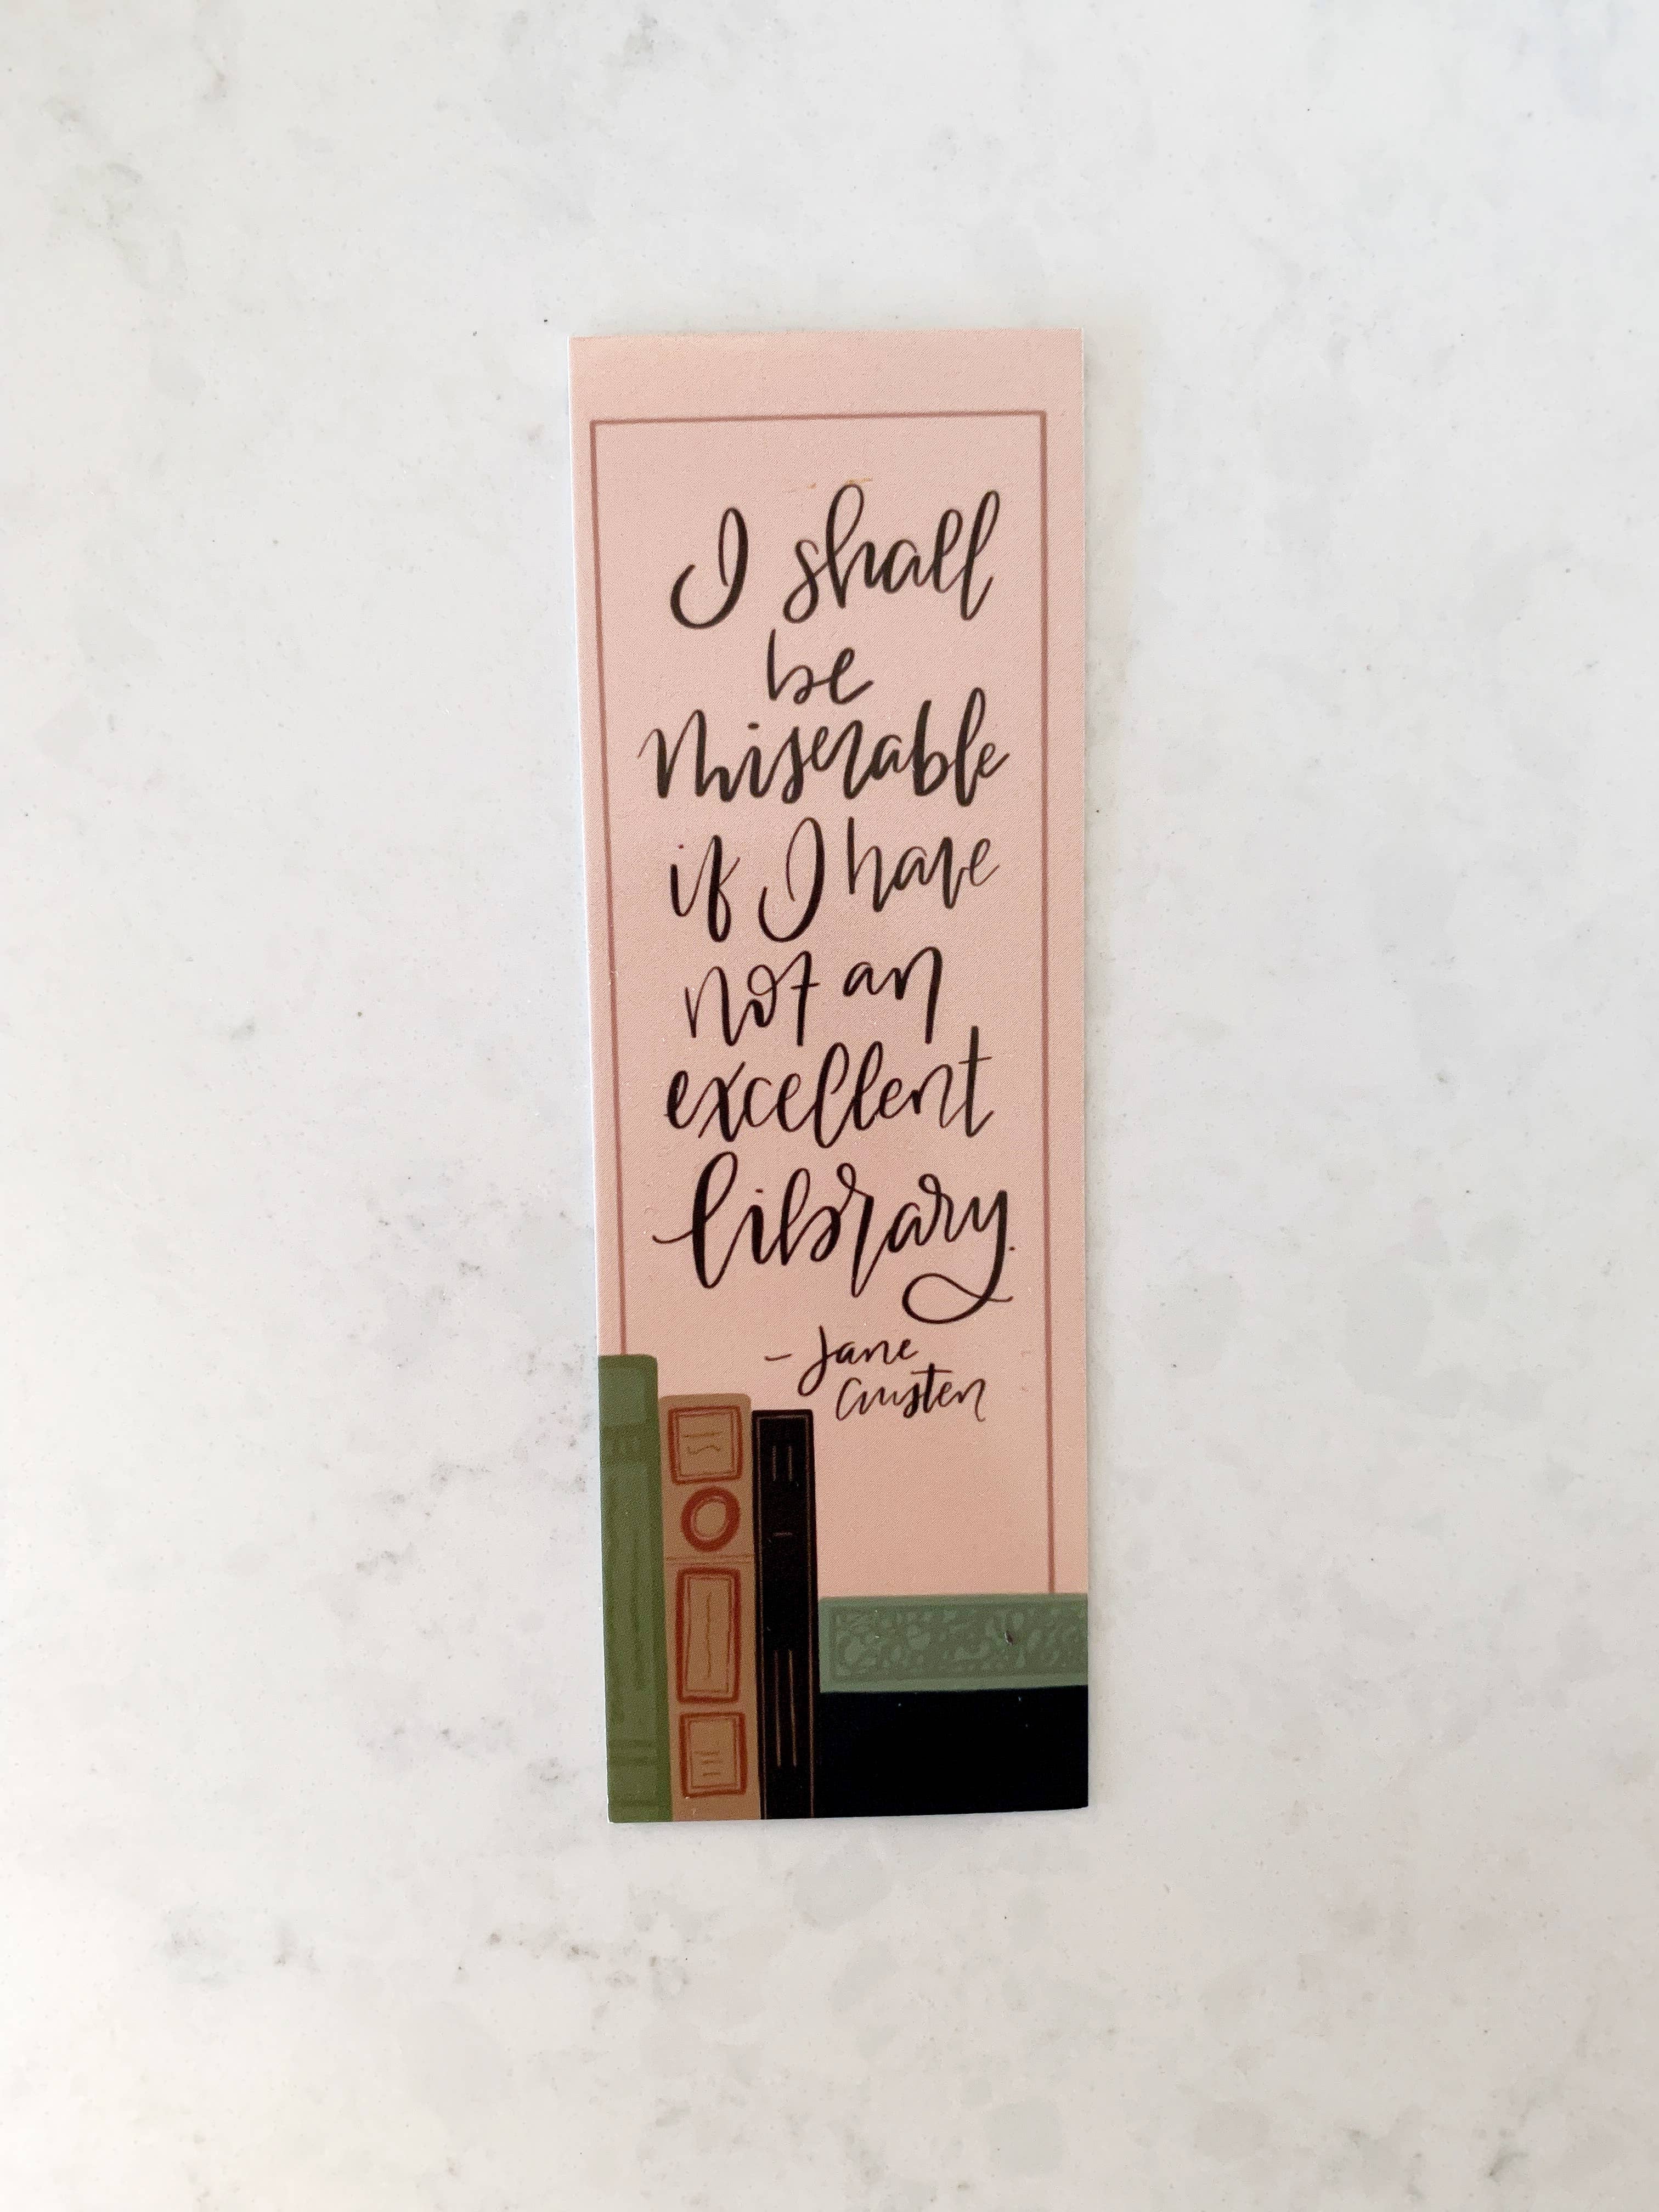 I shall
be
miserable
if I have
not an
excellent
library.
- Jane
Austen